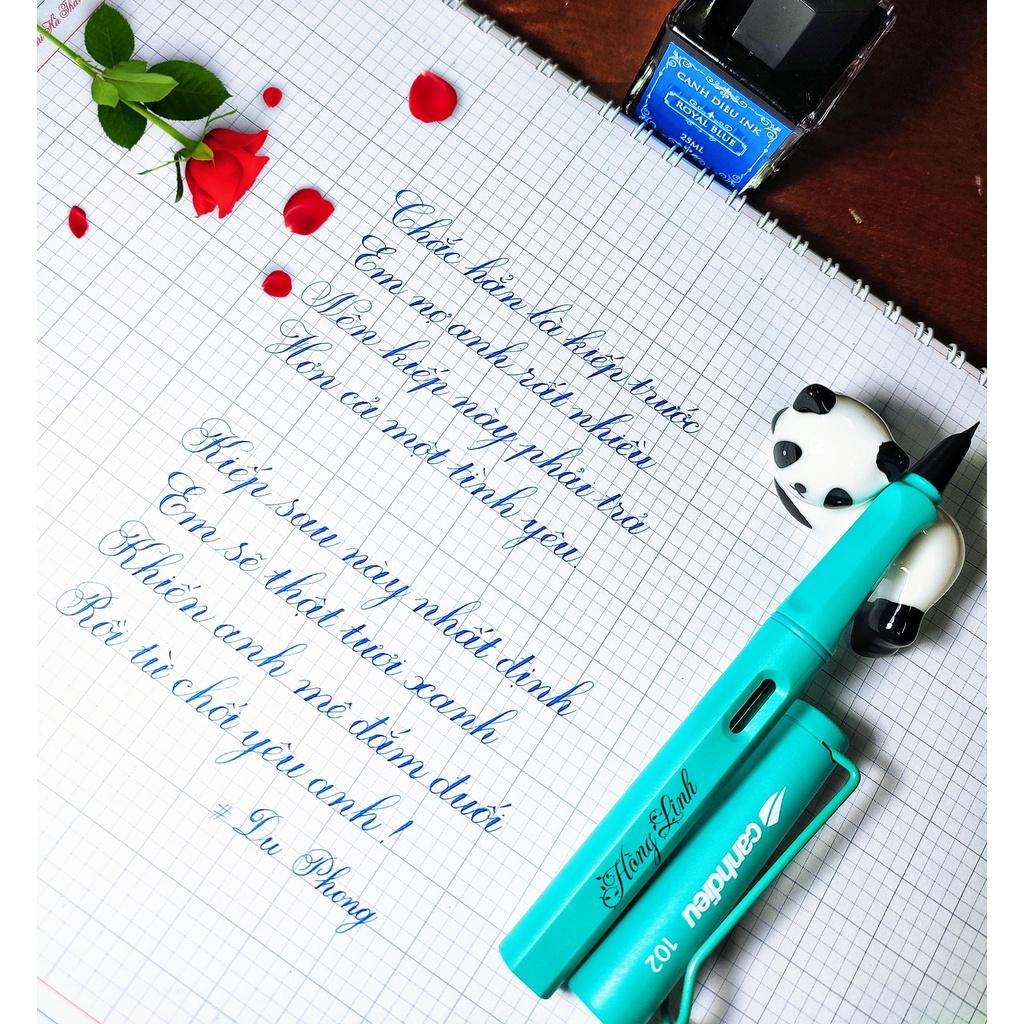 CANH DIEU INK
ROYAL BLUE
25ML
Chắc hẳn là kiếp trước
Em nợ anh rất nhiều
Nên kiếp này phải trả
Hơn cả một tình yêu.
Kiếp sau này nhất định
Em sẽ thật tươi xanh
Khiến anh mê đắm đuối
Rồi từ chối yêu anh!
# Du Phong
Hồng Linh
canhdieu 102